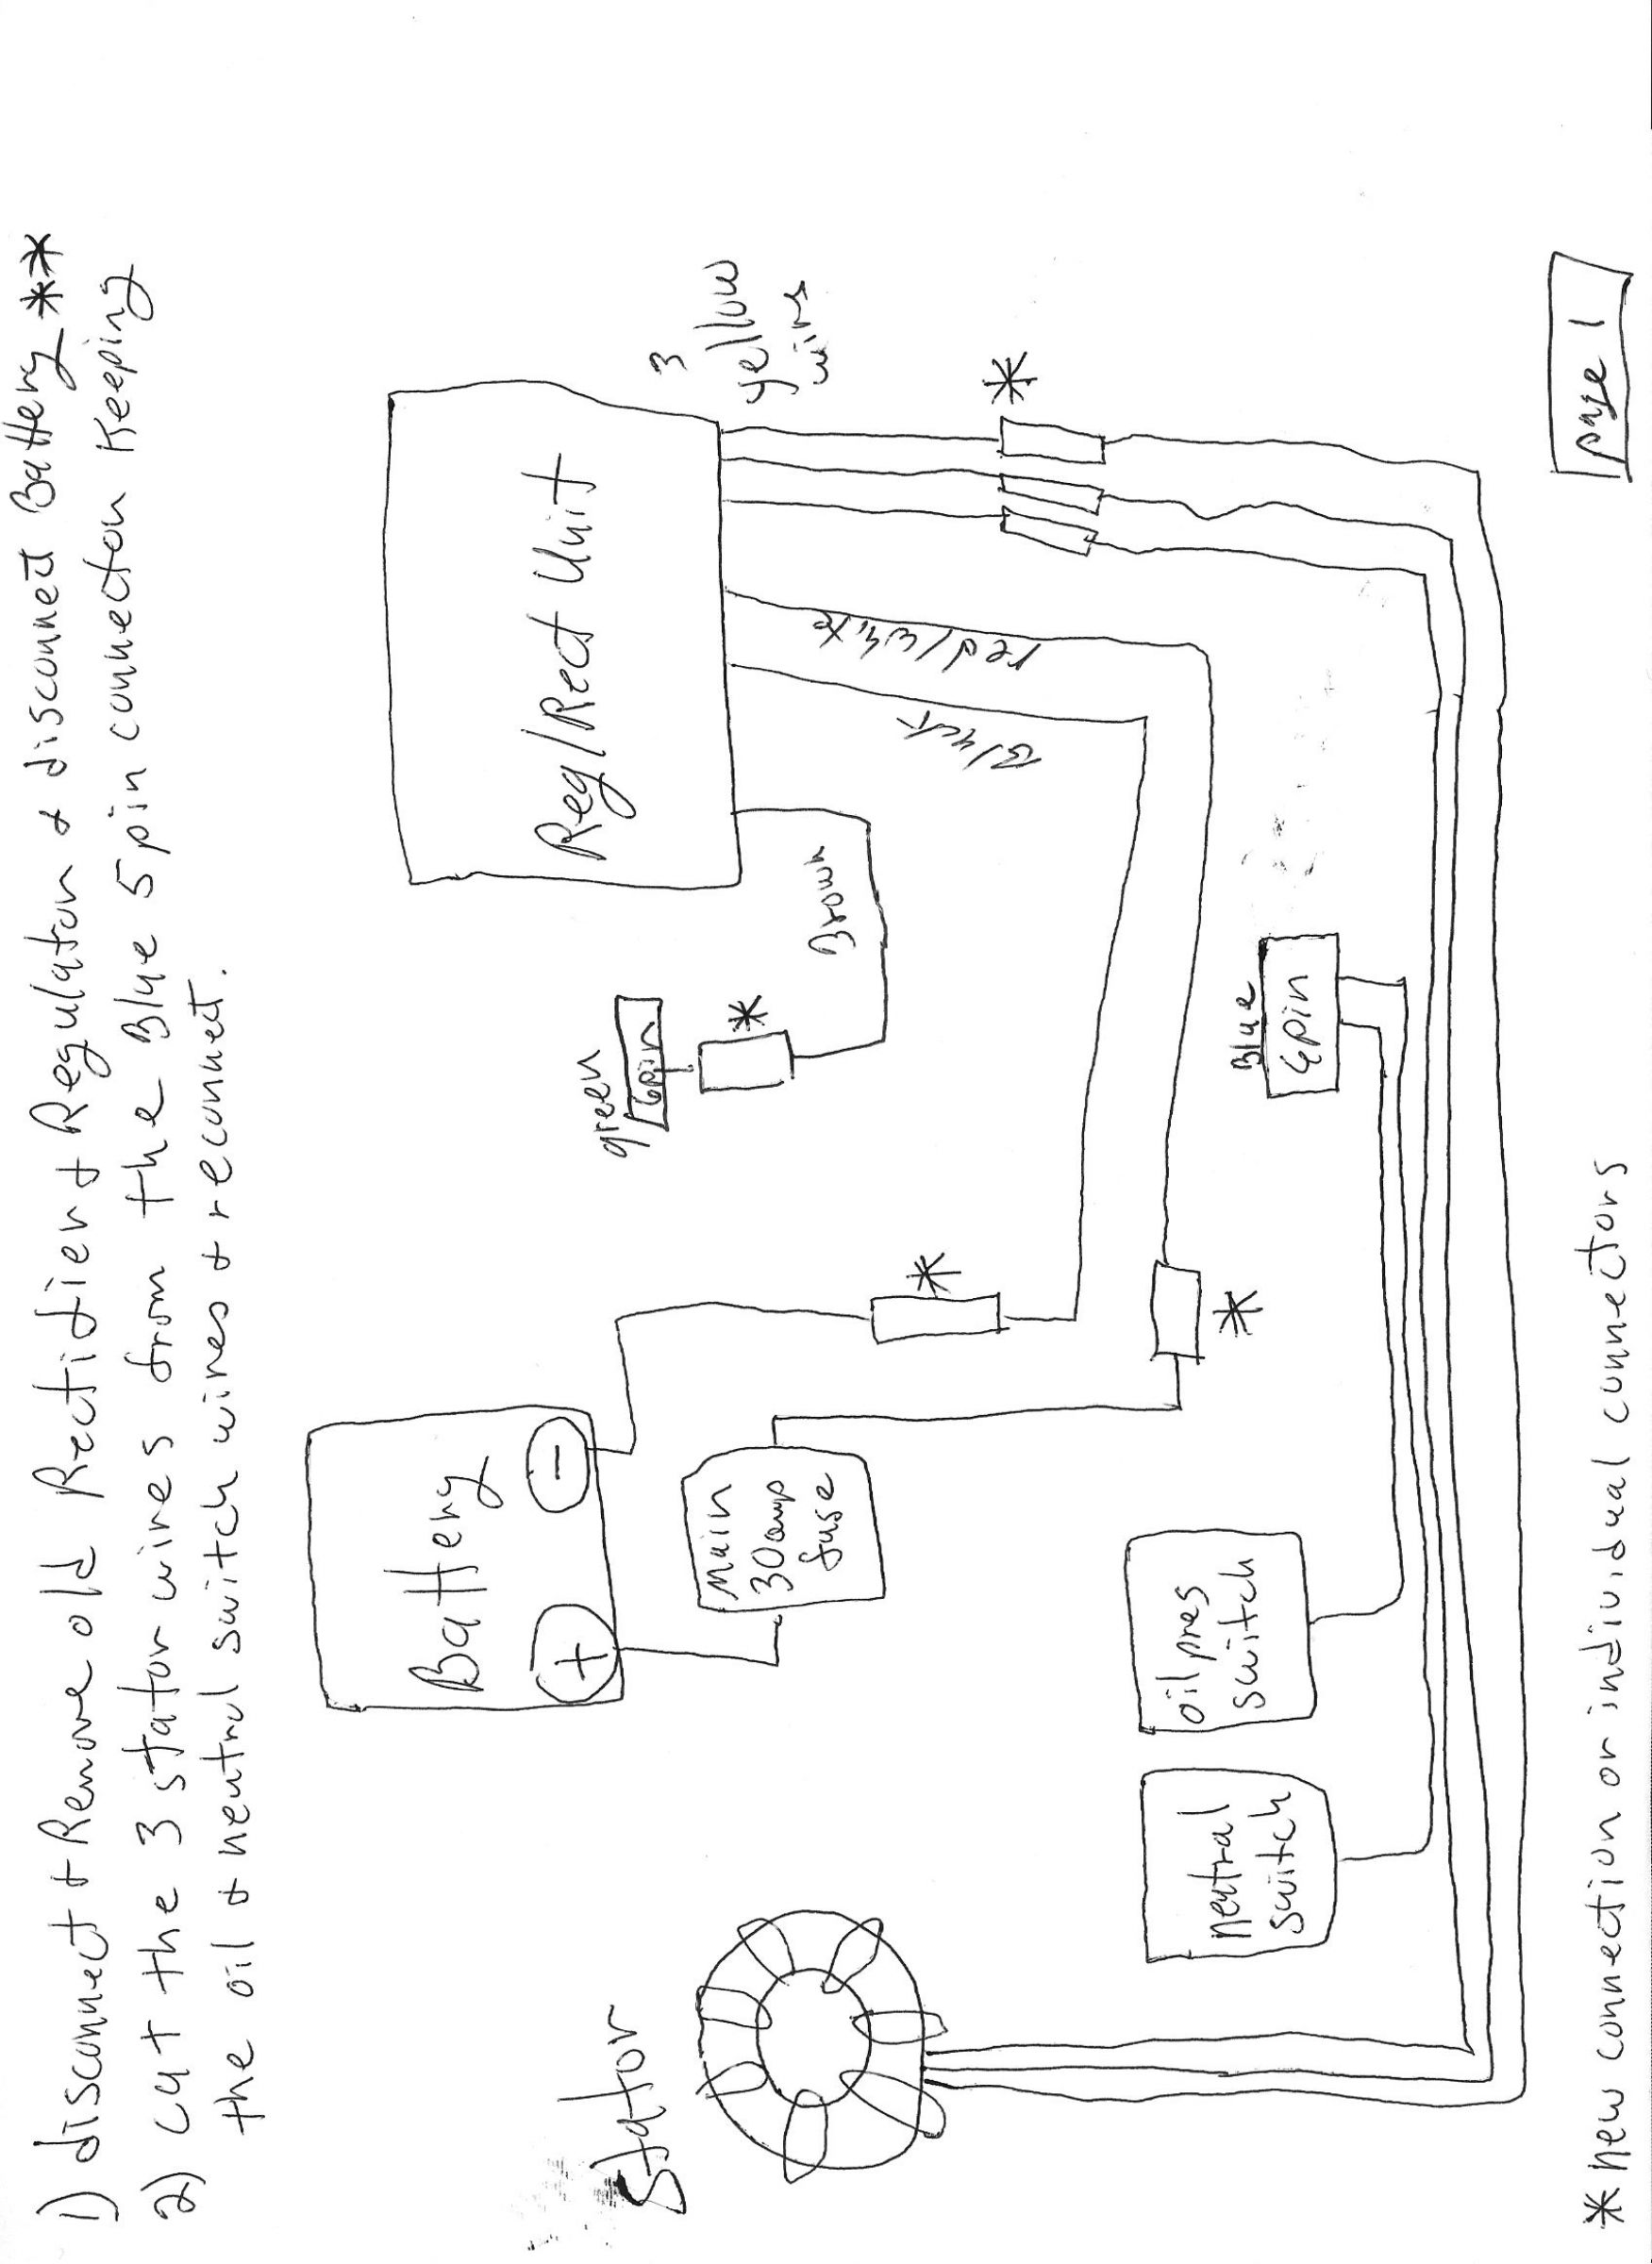 1) disconnect & Remove old Rectifier & Regulator & disconnect Battery **
2) cut the 3 stator wires from the Blue 5 pin connector Keeping
the oil & neutral switch wires & reconnect.
Reg/Rect Unit
3
yellow
wires
red/white
Black
Brown
green
6pin
Battery
+
-
Main
30amp
fuse
*
*
*
*
Blue
6pin
Stator
neutral
switch
oil pres
switch
* new connection or individual connectors
page 1